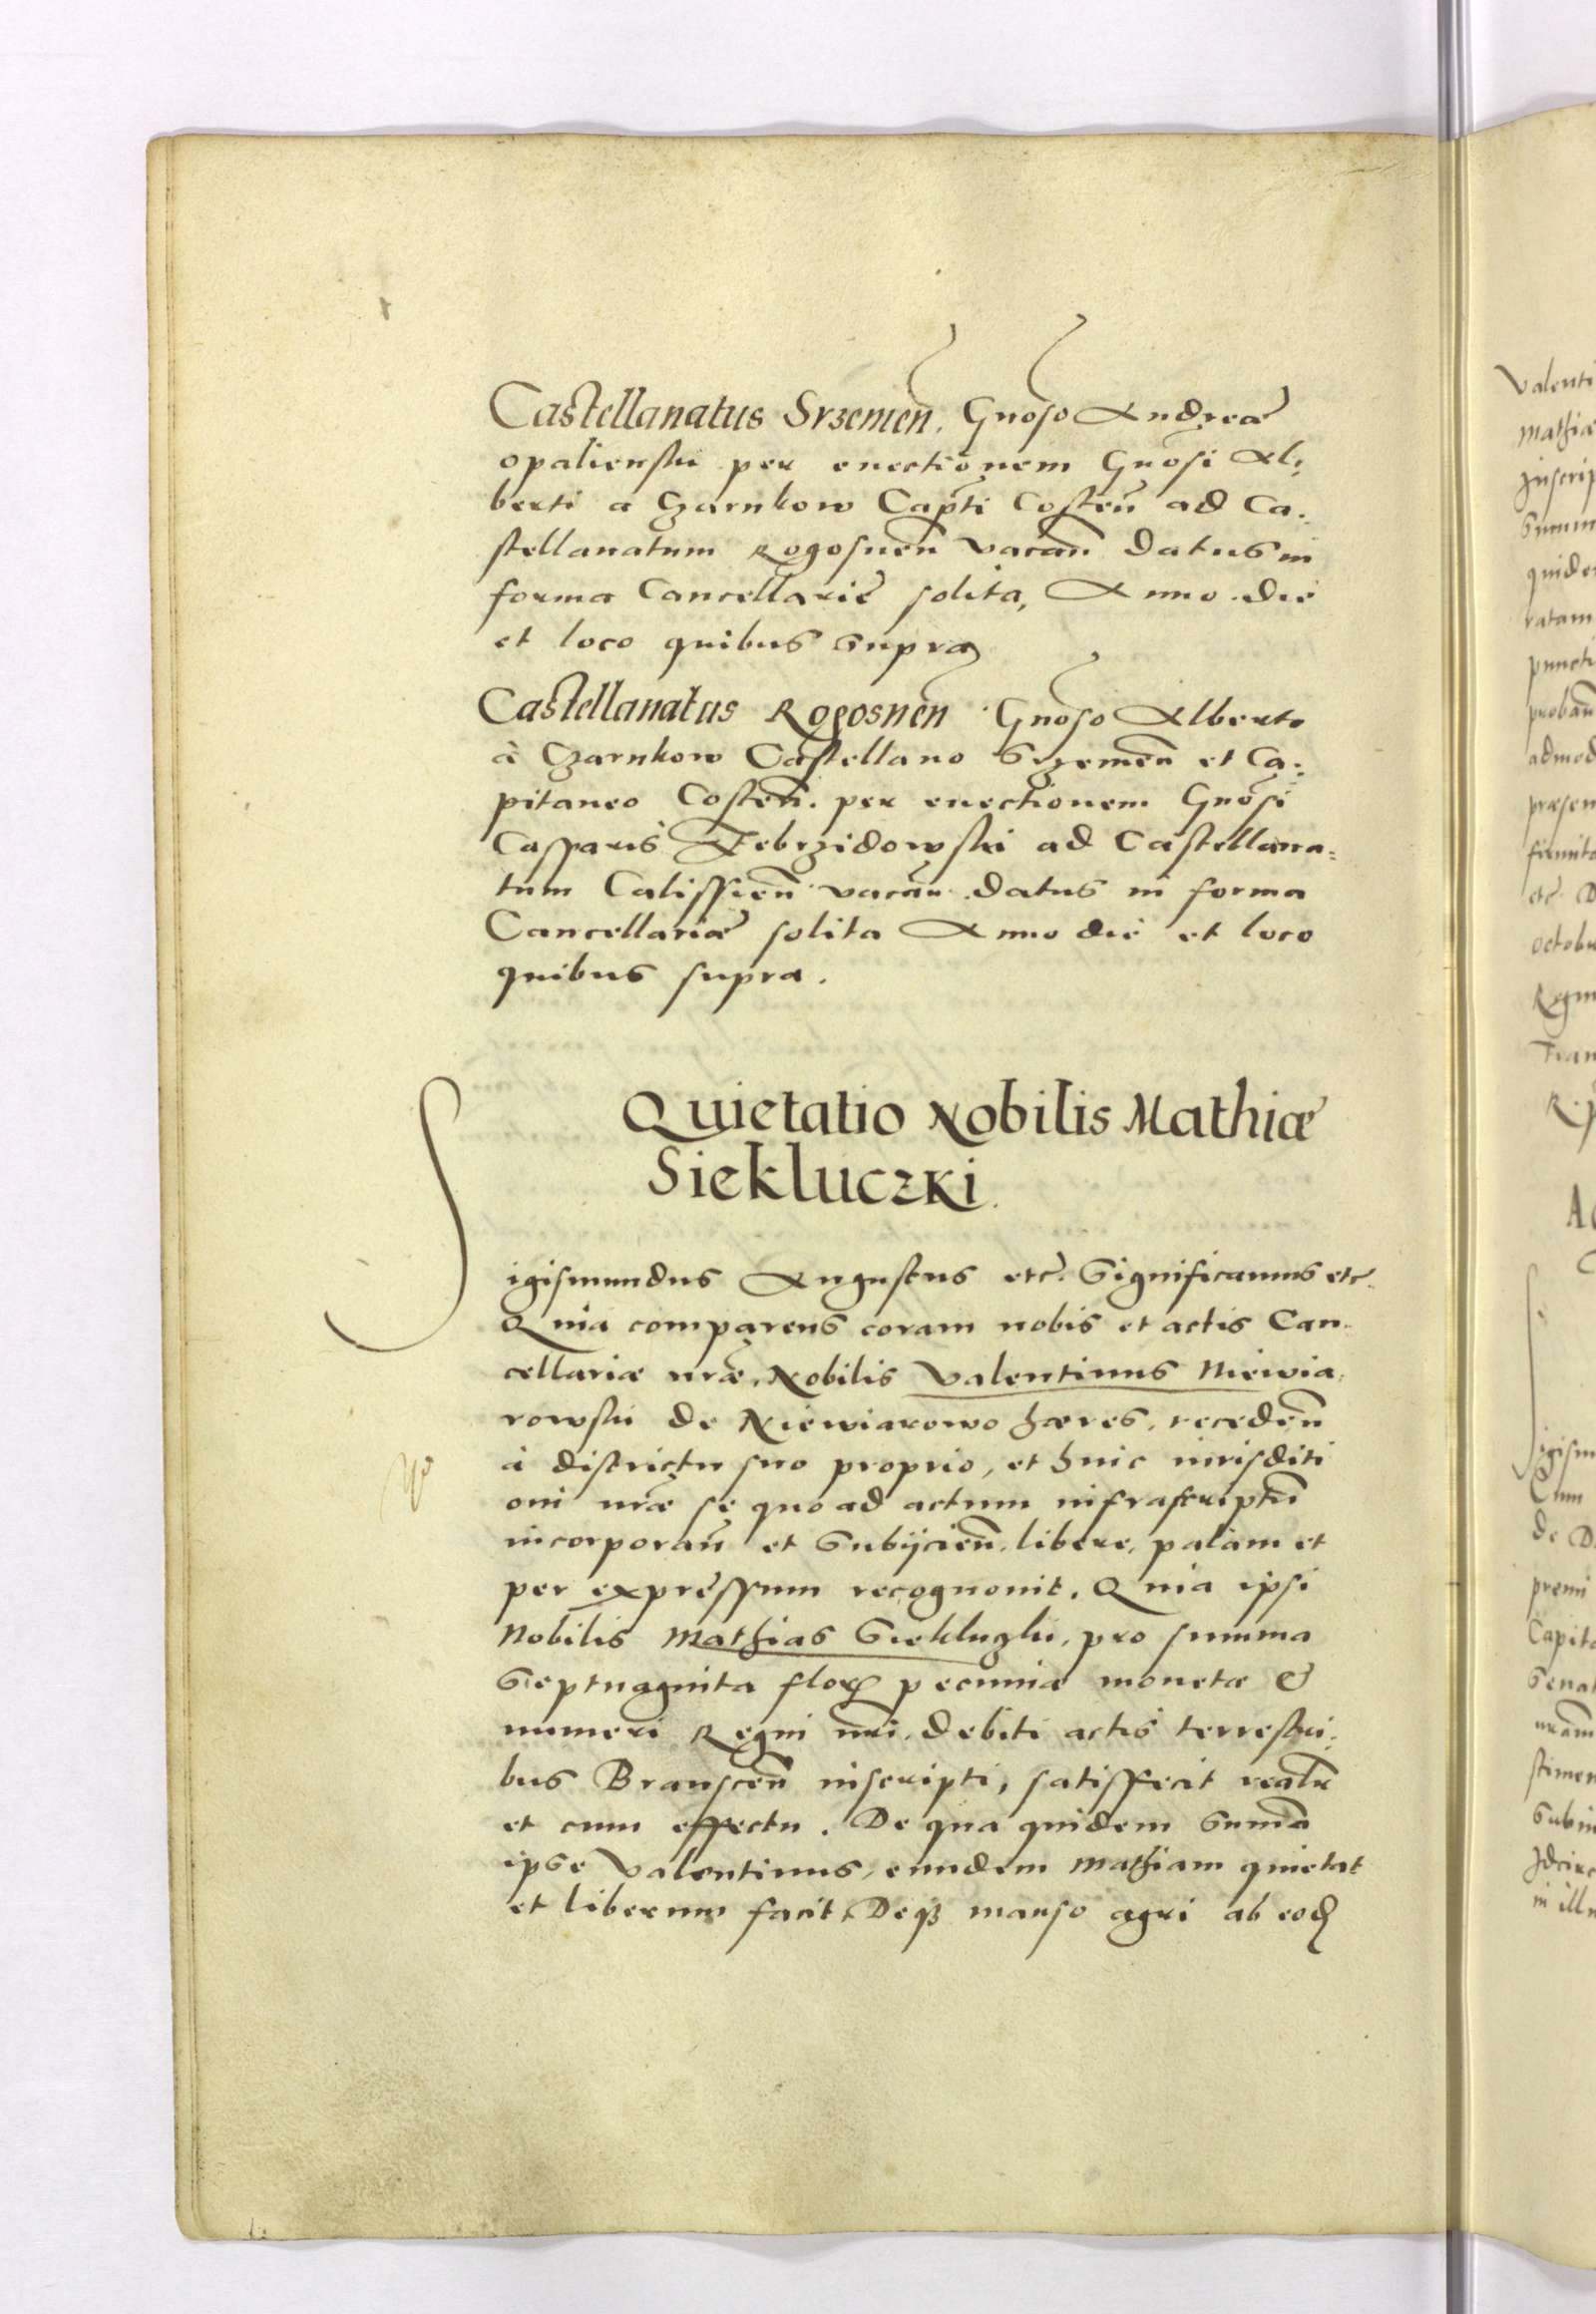 Castellanatus Srzemen̄. Gnoso Andreæ
opalienski per euectionem Gnosi Al:
berti a Czarnkow Capti Costen̄ ad Ca:
stellanatum Rogosnen̄ vacan̄ datus in
forma Cancellariæ solita, Anno die
et loco quibus supra
Castellanatus Rogosnen̄ Gnoso Alberto
à Czarnkow Castellano Srzemen̄ et Ca:
pitaneo Costen̄. per euectionem Gnosi
Casparis Zebrzidowski ad Castellana:
tum Calissien̄ vacan̄ datus in forma
Cancellariæ solita Anno die et loco
quibus supra.
Quietatio Nobilis Mathiæ
Siekluczki.
Sigismundus Augustus etc. Significamus etc.
Quia comparens coram nobis et actis Can
cellariæ nræ, Nobilis Valentinus Niewia
rowski de Niewiarowo hæres, receden̄
à districtu suo proprio, et huic iurisditi
oni nræ se quo ad actum infrascriptū
incorporan̄ et subijcien̄, libere, palàm et
per expressum recognouit. Quia ipsi
Nobilis Mathias Siekluczki, pro summa
Septuaginta floꝝ pecuniæ monetæ &
numeri Regni nri, debiti actis terrestri:
bus Branscen̄ inscripti, satisfecit realr
et cum effectu. De qua quidem summa
ipse Valentinus, eundem Mathiam quietat
et liberum facit, Deqꝫ manso agri ab eod
Valenti
Mathiæ
Inscrip
summ
quide
ratam
puncti
proban̄
admod
præsen
firmita
etc. D
octobr
Regni
Fran
R. p
Ac
igism
Cum
de D
premi
Capita
Senat
nram
stimen
Subin
Idcirc
in ill